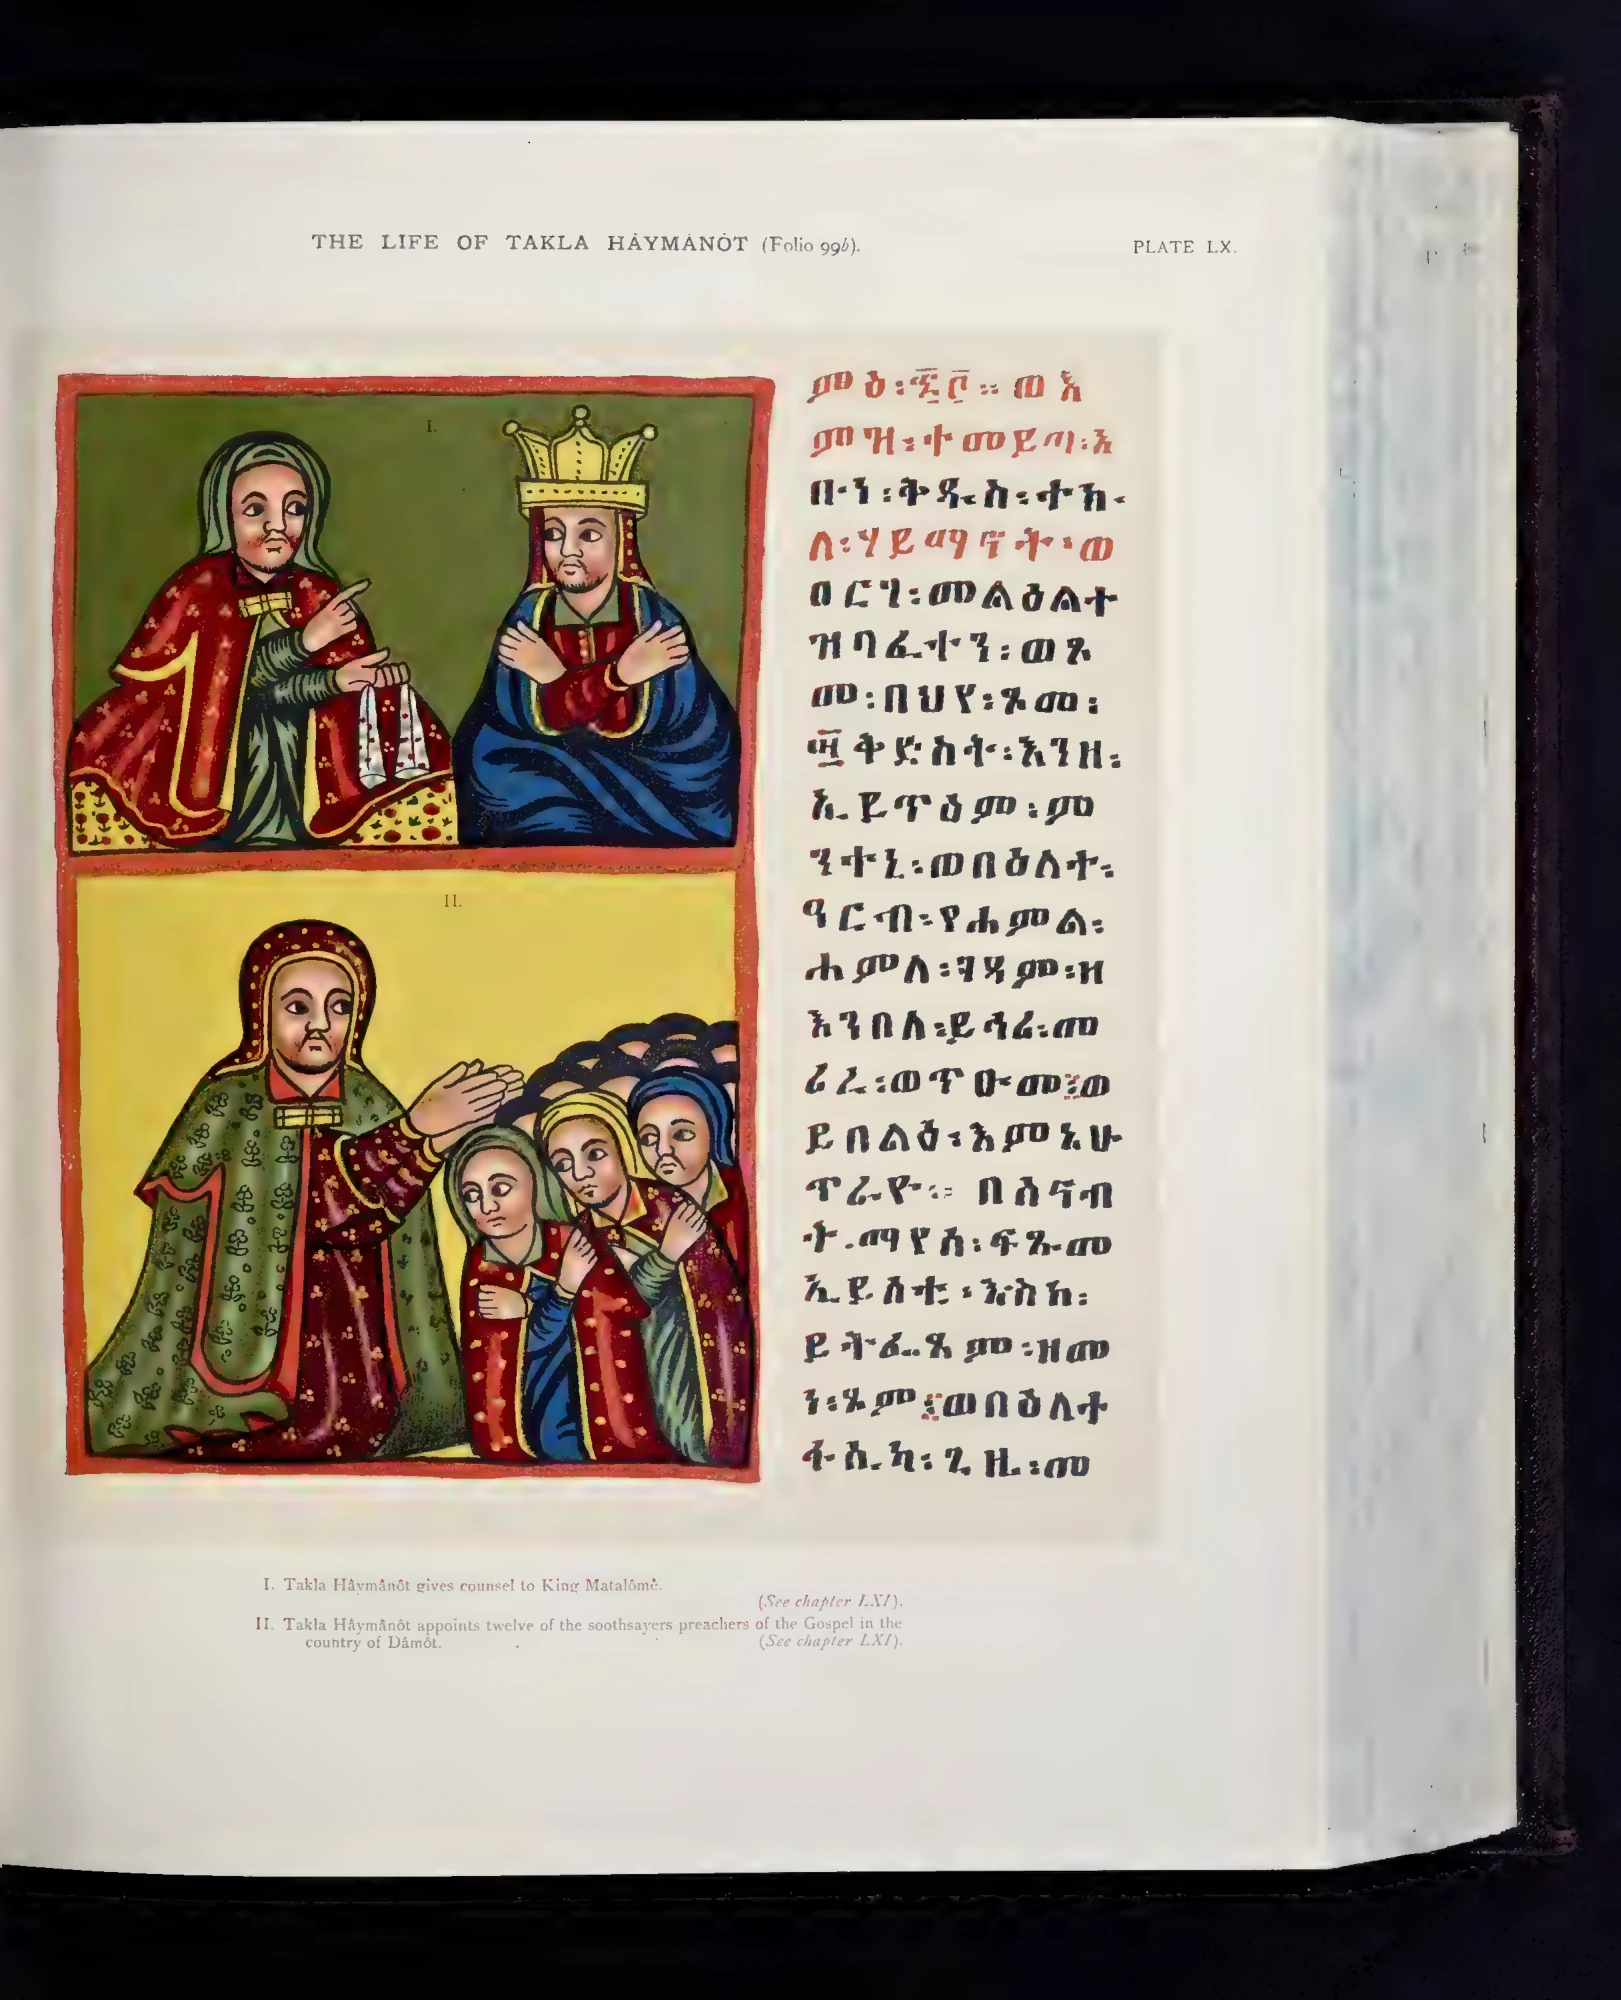 THE LIFE OF TAKLA HÂYMÂNÔT (Folio 99b).
PLATE LX.
I.
II.
ምዕ፡፷፫። ወእ
ምዝ፡ተመይጣ፡አ
ቡን፡ቅዱስ፡ተክ
ለ፡ሃይማኖት፡ወ
ዐርገ፡መልዕልተ
ዝባፈተን፡ወጾ
መ፡በህየ፡ጾመ፡
፵ቅድስት፡እንዘ፡
ኢይጥዕም፡ም
ንተኒ፡ወበዕለተ፡
ዓርብ፡የሐምል፡
ሐምለ፡ገዳም፡ዘ
እንበለ፡ይሳሬ፡መ
ሪረ፡ወጥዑመ፡ወ
ይበልዕ፡እምኔሁ
ጥሬዮ። በሰናብ
ት፡ማየሰ፡ፍጹመ
ኢይሰቲ፡እስከ፡
ይትፌጸም፡ዘመ
ን፡ጾም፡ወበዕለተ
ፋሲካ፡ጊዜ፡መ
I. Takla Hâymânôt gives counsel to King Matalômê.
(See chapter LXI).
II. Takla Hâymânôt appoints twelve of the soothsayers preachers of the Gospel in the
country of Dâmôt. (See chapter LXI).